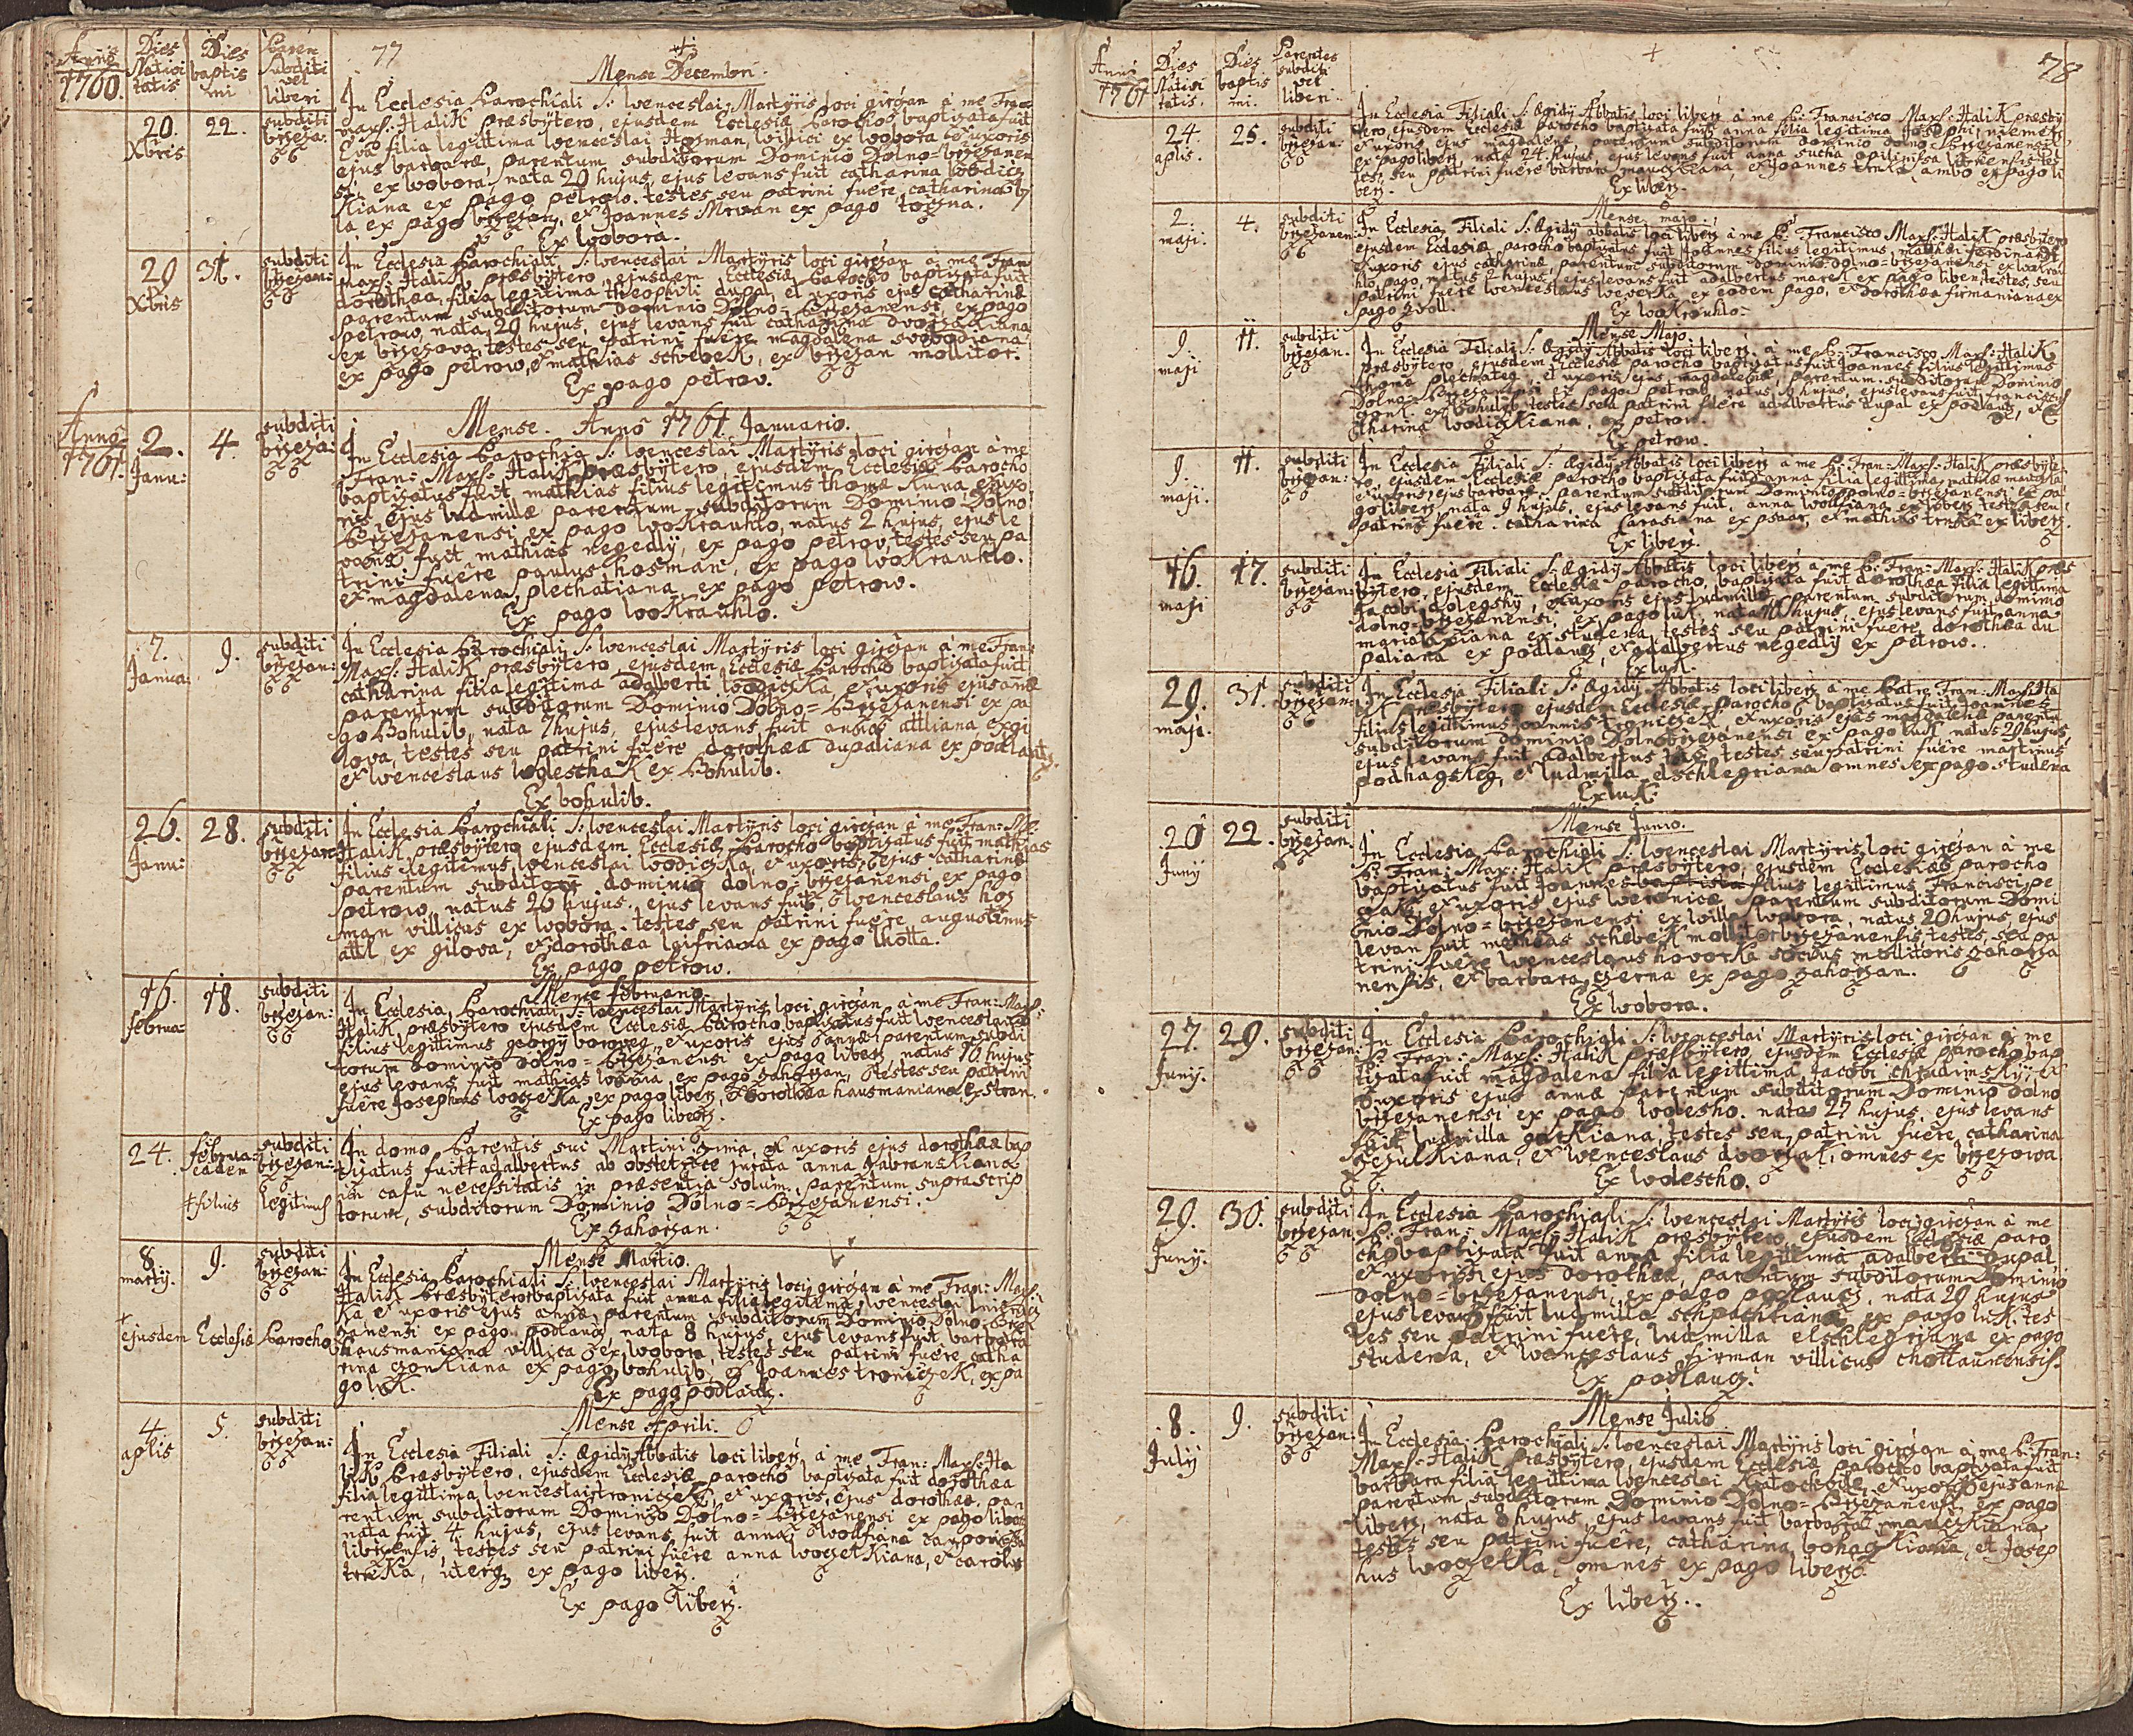 77
Anno 1760.
Dies Nativitatis
Dies baptismi
Paren subditi vel liberi
Mense Decembri.
20. Xbris
22.
subditi brzezan:
In Ecclesia Parochiali S: Wenceslai Martyris loci girczan à me Fran:
Maxl: Halik præsbytero, ejusdem Ecclesiæ Parocho baptizata fuit
Eva filia legittima Wenceslai Hosman, villici ex wobora et uxoris
ejus barbaræ, parentum subditorum Dominio Dolno=brzezanen
si, ex wobora, nata 20 hujus, ejus levans fuit catharina wodicz
kiana ex pago petrow. testes seu patrini fuêre, catharina
ex pago brzezan, et Joannes ex pago
Ex wobora.
29 Xbris
31.
subditi brzezan:
In Ecclesia Parochiali S: Wenceslai Martyris loci girczan à me Fran:
Maxl: Halik præsbytero, ejusdem Ecclesiæ Parocho baptizata fuit
dorothæa, filia legittima theophili dupal, et uxoris ejus catharinæ
parentum subditorum Dominio Dolno=brzezanensi, ex pago
petrow, nata 29 hujus, ejus levans fuit catharina dworzakiana
ex brzezowa, testes seu patrini fuêre magdalena swobodiana
ex pago petrow, et mathias schebek, ex brzezan mollitor.
Ex pago petrov.
Anno 1761.
Mense. Anno 1761. Januario.
2. Janu:
4.
subditi brzeza:
In Ecclesia Parochia S: Wenceslai Martyris loci girczan à me
Fran: Maxl: Halik præsbytero, ejusdem Ecclesiæ Parocho
baptizatus fuit, mathias filius legitimus thomæ Kuna, et uxo
ris, ejus ludmillæ parentum subditorum Dominio Dolno
brzezanensi ex pago wokrauhlo, natus 2 hujus, ejus le
vans fuit mathias negedly, ex pago petrov, testes seu pa
trini fuêre paulus hosman, ex pago wokrauhlo.
et magdalena plechatiana ex pago petrow.
Ex pago wokrauhlo.
7. Janua:
9.
subditi brzezan:
In Ecclesia Parochiali S: Wenceslai Martyris loci girczan à me Fran:
Maxl: Halik præsbytero, ejusdem Ecclesiæ Parocho baptizata fuit
catharina filia legitima adalberti wodiczka, et uxoris ejus annæ
parentum subditorum Dominio Dolno=Brzezanensi ex pa
go Bohulib, nata 7 hujus, ejus levans fuit anna attliana ex gi
lova, testes seu patrini fuêre dorothæa dupaliana ex podlautz.
et wenceslaus ex Bohulib.
Ex bohulib.
26. Janu:
28.
subditi brzezan:
In Ecclesia Parochiali S: Wenceslai Martyris loci girczan à me Fran: M:
Halik præsbytero ejusdem Ecclesiæ Parocho baptizatus fuit mathias
filius legitimus, wenceslai wodiczka, et uxoris, ejus catharinæ
parentum subditorum dominio dolno=brzezanensi ex pago
petrow, natus 26 hujus. ejus levans fuit, wenceslaus hos
man villicus ex wobora. testes seu patrini fuêre augustinus
attl, ex gilova, et dorothæa ex pago lhotta.
Ex pago petrow.
Mense februario.
16. februa:
18.
subditi brzezan:
In Ecclesia Parochiali, S: Wenceslai Martyris loci girczan à me Fran: Maxl:
Halik præsbytero ejusdem Ecclesiæ Parocho baptizatus fuit wenceslaus
filius legittimus georgy et uxoris ejus annæ parentum subdi
torum dominio dolno=brzezanensi ex pago liberz, natus 16 hujus
ejus levans fuit mathias ex pago zahorzan, testes seu patrini
fuêre Josephus ex pago liberz, et dorothæa hausmaniana,
Ex pago liberz.
24. februa: eadem
† filius
subditi brzezan:
legitimus
In domo Parentis sui Martini zima, et uxoris ejus dorothææ bap
tizatus fuit † adalbertus ab obstetrice jurata anna
in casu necessitatis in præsentia solum parentum suprascrip
torum, subditorum Dominio Dolno=Brzezanensi.
Ex zahorzan.
Mense Martio.
8 marty.
9.
subditi brzezan:
In Ecclesia Parochiali S: Wenceslai Martyris loci girczan à me Fran: Maxl:
Halik Præsbytero † baptizata fuit anna filia legitima wenceslai
ka et uxoris ejus annæ, parentum subditorum Dominio Dolno=Brze
zanensi ex pago podlautz, nata 8 hujus, ejus levans fuit barbara
† ejusdem Ecclesiæ Parocho
hausmaniana villica ex wobora, testes seu patrini fuêre catha
rina ex pago bohulib, et Joannes troniczek, ex pa
go luk.
Ex pago podlautz.
Mense Aprili.
4 aplis
5.
subditi brzezan:
In Ecclesia Filiali S: Ægidy Abbatis loci liberz à me Fran: Maxl: Ha
lik Præsbytero, ejusdem Ecclesiæ parocho baptizata fuit dorothæa
filia legittima, wenceslai troniczek, et uxoris, ejus dorothæa, pa
rentum subditorum Dominio Dolno=Brzezanensi ex pago liberz
nata fuit 4 hujus, ejus levans fuit anna wolfiana
liberzensis, testes seu patrini fuêre anna wogetkiana, et carolus
trnka, uterq ex pago liberz.
Ex pago liberz.
78
Anno 1761
Dies Nativitatis.
Dies baptismi.
Parentes subditi vel liberi.
24. aplis.
25.
subditi brzezan:
In Ecclesia Filiali S: Ægidy Abbatis loci liberz à me P: Francisco Maxl: Halik præsby
tero, ejusdem Ecclesiæ parocho baptizata fuit anna filia legitima Josephi
et uxoris ejus magdalenæ parentum subditorum dominio dolno=brzezanensi
ex pago liberz, nata 24 hujus, ejus levans fuit anna sucha
seu patrini fuêre barbara et Joannes trnka, ambo ex pago li
berz.
Ex liberz.
Mense majo.
2. maji.
4.
subditi brzezanen:
In Ecclesia Filiali S: Ægidy abbatis loci liberz à me P: Francisco Maxl: Halik præsbytero
ejusdem Ecclesiæ parocho baptizatus fuit Joannes filius legitimus, mathæi ferdinandt
et uxoris ejus catharinæ, parentum subditorum dominio dolno=brzezanensi ex wokrau
hlo, pago, natus 2 hujus, ejus levans fuit adalbertus marek ex pago liberz, testes, seu
patrini fuêre wenceslaus weverka, ex eodem pago, et dorothæa firmaniana ex
pago zwoll.
Ex wokrauhlo.
Mense Majo.
9. maji
11.
subditi brzezan.
In Ecclesia Filiali S: Ægidy Abbatis loci liberz à me P: Francisco Maxl: Halik
præsbytero, ejusdem Ecclesiæ parocho baptizatus fuit Joannes filius legitimus
thomæ et uxoris ejus magdalenæ, parentum subditorum Dominio
Dolno=brzezanensi ex pago petrow, natus 9 hujus, ejus levans fuit franciscus
ex bohulib, testes seu patrini fuêre adalbertus dupal ex podlautz, et
catharina wodiczkiana, ex petrow.
Ex petrow.
9. maji.
11.
subditi brzezan:
In Ecclesia Filiali S: Ægidy Abbatis loci liberz à me P: Fran: Maxl: Halik præsbyte
ro, ejusdem Ecclesiæ parocho baptizata fuit anna filia legittima, mathiæ
et uxoris, ejus barbaræ, parentum subditorum Dominio dolno=brzezanensi ex pa
go liberz, nata 9 hujus, ejus levans fuit, anna wolfiana, ex liberz testes seu
patrini fuêre catharina ex psaar, et mathias trnka ex liberz.
Ex liberz.
16. maji
17.
subditi brzezan:
In Ecclesia Filiali S: Ægidy Abbatis loci liberz à me P: Fran: Maxl: Halik præs
bytero, ejusdem Ecclesiæ parocho, baptizata fuit dorothæa filia legittima
Jacobi dolegsky, et uxoris ejus ludmillæ, parentum subditorum dominio
dolno=brzezanensi, ex pago luk nata 16 hujus, ejus levans fuit anna
ex studena, testes seu patrini fuêre dorothæa du
paliana ex podlautz, et adalbertus negedly ex petrow.
Ex luk.
29. maji.
31.
subditi brzezan:
In Ecclesia Filiali S: Ægidy Abbatis loci liberz à me Patre Fran: Maxl: Ha
lik præsbytero ejusdem Ecclesiæ parocho baptizatus fuit Joannes
filius legittimus Joannis troniczek, et uxoris ejus magdalenæ parentum
subditorum dominio Dolno brzezanensi ex pago luk natus 29 hujus,
ejus levans fuit adalbertus testes seu patrini fuêre martinus
podhagskeg, et ludmilla elschlegriana omnes ex pago studena
Ex luk.
Mense Junio.
20 Juny
22.
subditi brzezan.
In Ecclesia Parochiali S: Wenceslai Martyris loci girczan à me
P: Fran: Max: Halik Præsbytero, ejusdem Ecclesiæ parocho
baptizatus fuit Joannes baptista filius legittimus Francisci pe
et uxoris ejus weronicæ, parentum subditorum Domi
nio Dolno=brzezanensi ex villa wobora, natus 20 hujus ejus
levans fuit mathias schebek mollitor brzezanensis, testes, seu pa
trini fuêre wenceslaus hovorka socius mollitoris zahorza
nensis, et barbara czerna ex pago zahorzan.
Ex wobora.
27. Juny.
29.
subditi brzezan:
In Ecclesia Parochiali S: Wenceslai Martyris loci girczan à me
P: Fran: Maxl: Halik Præsbytero, ejusdem Ecclesiæ parocho bap
tizata fuit magdalena filia legittima Jacobi chrudimsky, et
uxoris ejus annæ parentum subditorum Dominio Dolno
brzezanensi ex pago wodesho. nata 27 hujus, ejus levans
fuit ludmilla testes seu patrini fuêre catharina
et wenceslaus dworzak, omnes ex brzezowa
Ex wodescho.
29. Juny.
30.
subditi brzezan:
In Ecclesia Parochiali S: Wenceslai Martyris loci girczan à me
P: Fran: Maxl: Halik præsbytero, ejusdem Ecclesiæ paro
cho baptizata fuit anna filia legittima adalberti dupal
et uxoris ejus dorothææ, parentum subditorum Dominio
dolno=brzezanensi, ex pago podlautz, nata 29 hujus
ejus levans fuit ludmilla schpachtiana, ex pago luk. tes
tes seu patrini fuêre, ludmilla elschlegriana ex pago
studena, et wenceslaus firman villicus chottaunensis.
Ex podlautz.
Mense Julio
8. July
9.
subditi brzezan:
In Ecclesia Parochiali S: Wenceslai Martyris loci girczan à me P: Fran:
Maxl: Halik Præsbytero, ejusdem Ecclesiæ parocho baptizata fuit
barbara filia legittima Wenceslai et uxoris ejus annæ
parentum subditorum Dominio Dolno=Brzezanensi, ex pago
liberz, nata 8 hujus, ejus levans fuit barbara
testes seu patrini fuêre, catharina et Josep
hus wogetka, omnes ex pago liberz.
Ex liberz.